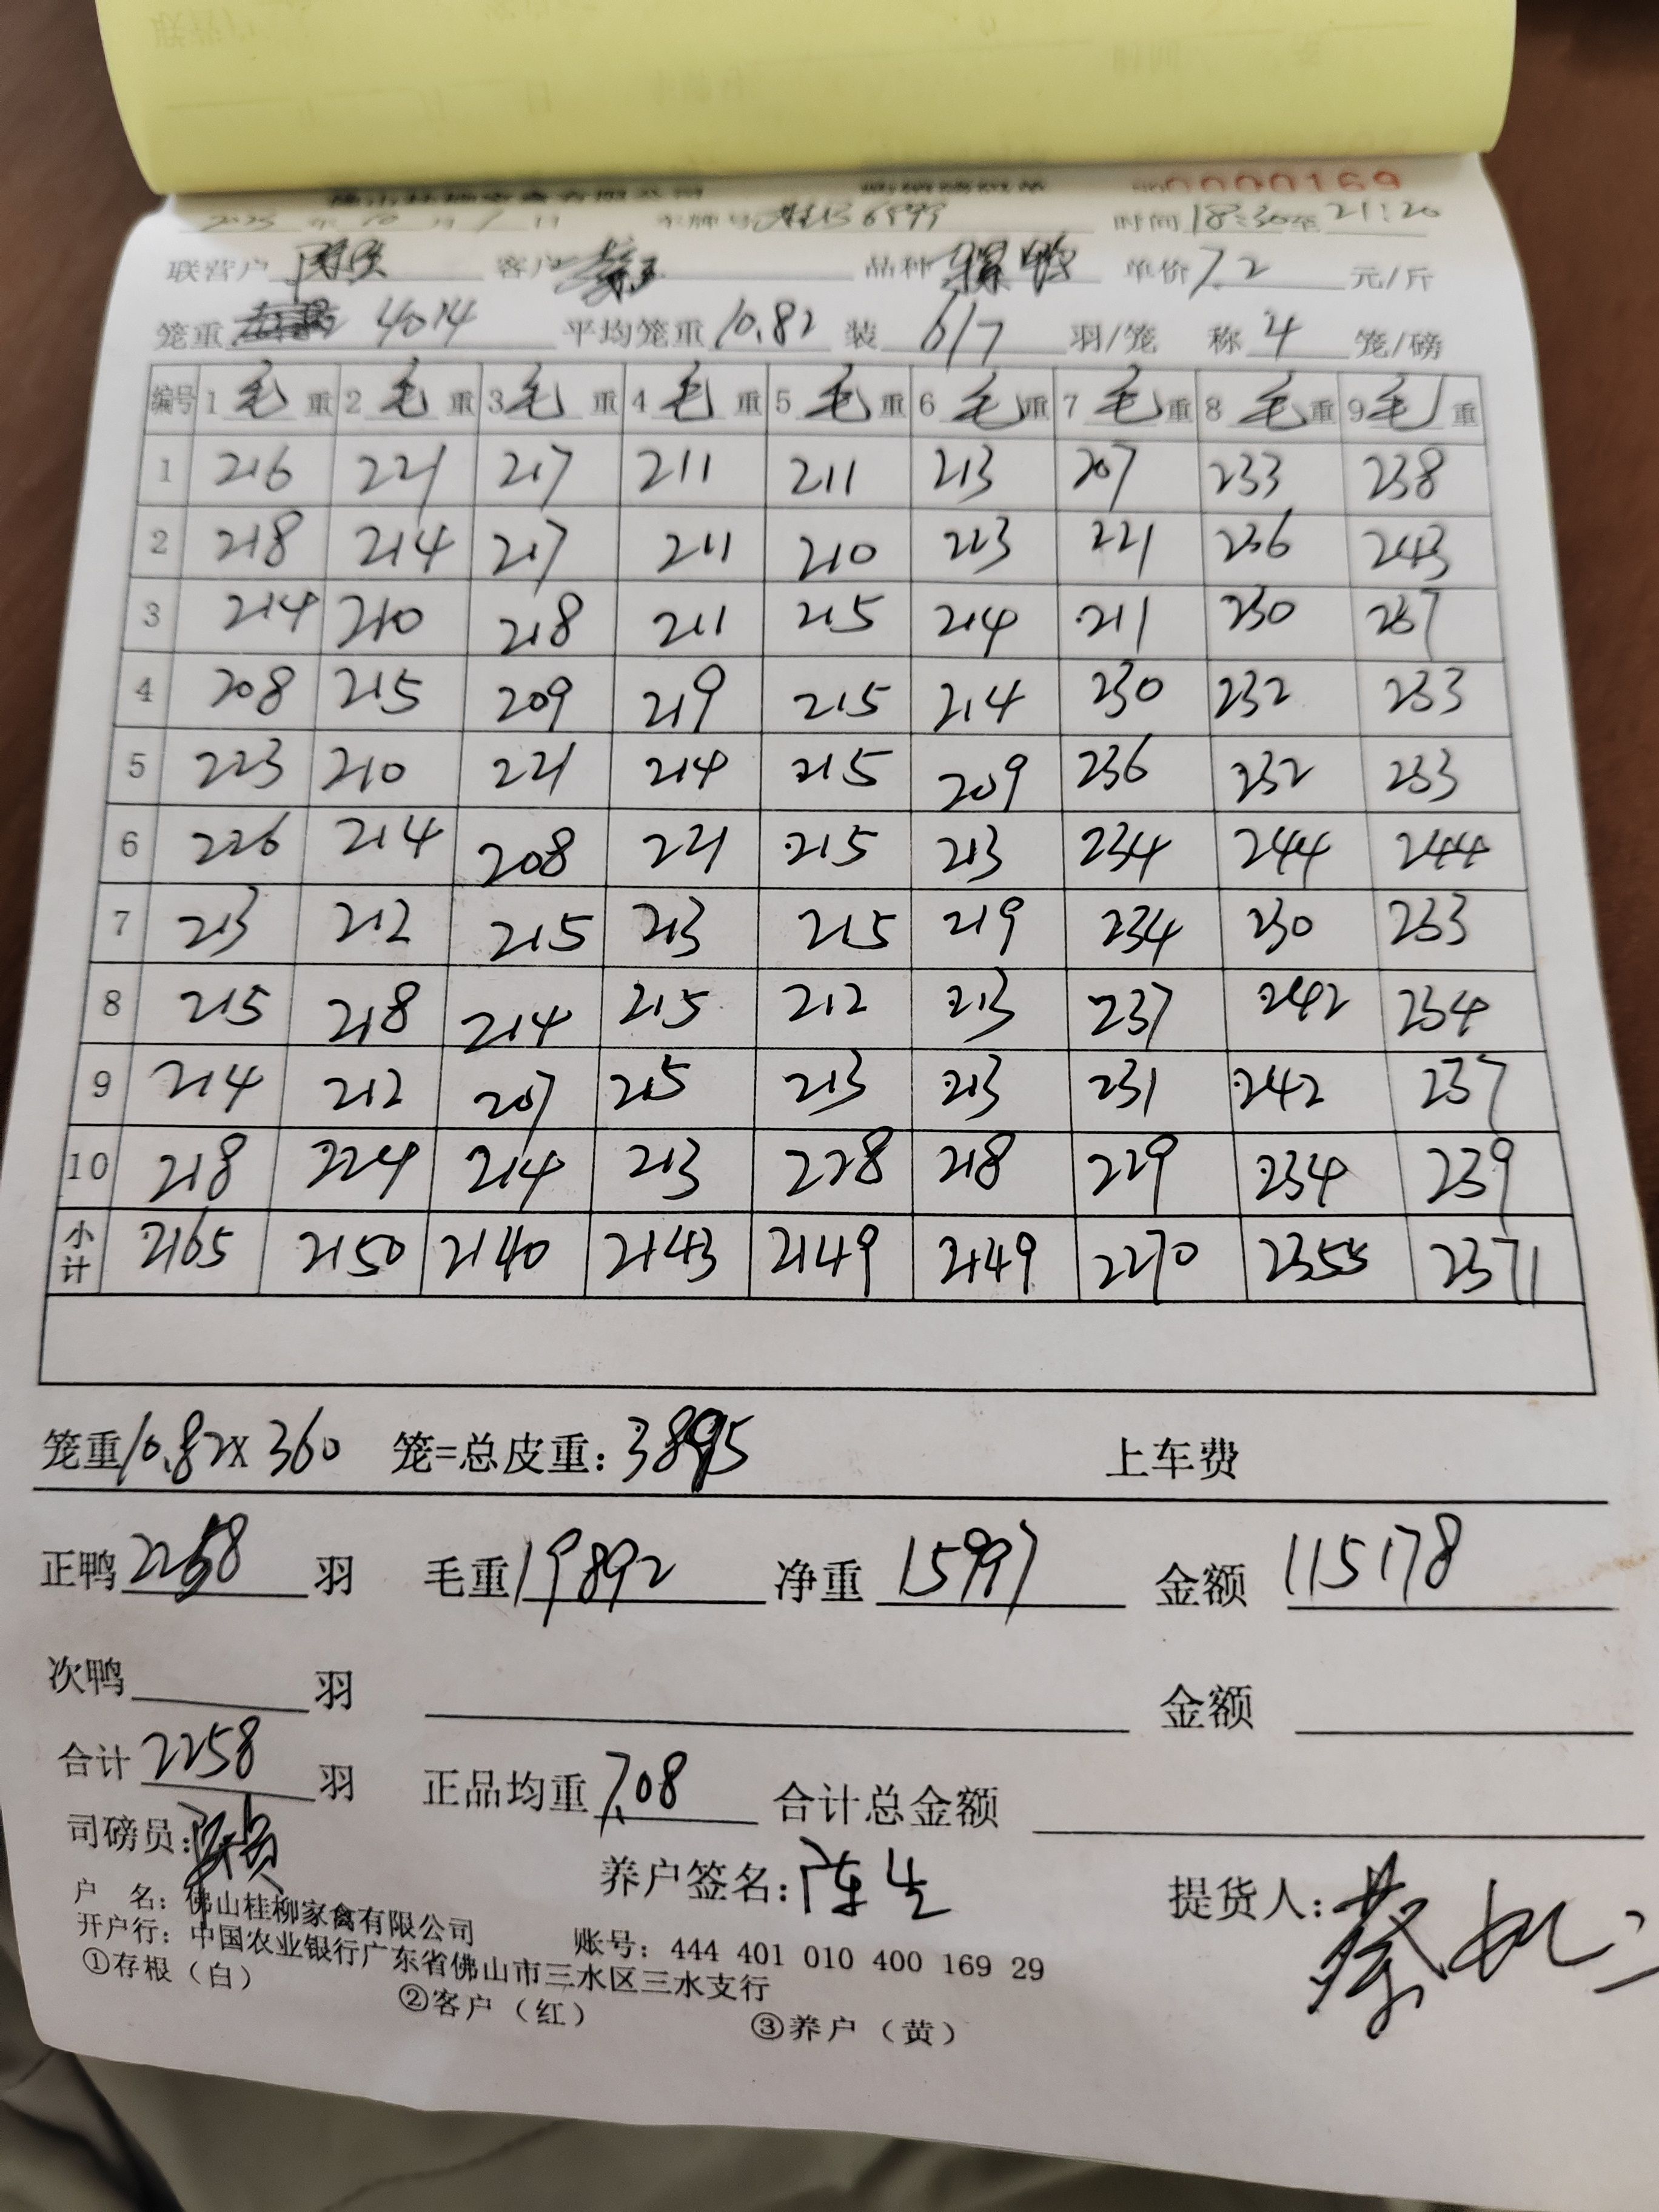 0000169
2025 年 10 月 1 日 车牌号 6899 时间 18:30 至 21:20
联营户 客户 品种 单价 7.2 元/斤
笼重 4014 平均笼重 10.82 装 6/7 羽/笼 称 4 笼/磅
编号 1 毛 重 2 毛 重 3 毛 重 4 毛 重 5 毛 重 6 毛 重 7 毛 重 8 毛 重 9 毛 重
1 216 221 217 211 211 213 207 233 238
2 218 214 217 211 210 223 221 236 243
3 214 210 218 211 215 214 211 230 237
4 208 215 209 219 215 214 230 232 233
5 223 210 221 214 215 209 236 232 233
6 226 214 208 221 215 213 234 244 244
7 213 212 215 213 215 219 234 230 233
8 215 218 214 215 212 213 237 242 234
9 214 212 207 215 213 213 231 242 237
10 218 224 214 213 228 218 229 234 239
小计 2165 2150 2140 2143 2149 2149 2270 2355 2371
笼重 10.82 X 360 笼=总皮重: 3895 上车费
正鸭 2258 羽 毛重 19892 净重 15997 金额 115178
次鸭 羽 金额
合计 2258 羽 正品均重 7.08 合计总金额
司磅员: 养户签名: 陈生 提货人: 蔡
户 名: 佛山桂柳家禽有限公司 账号: 444 401 010 400 169 29
开户行: 中国农业银行广东省佛山市三水区三水支行
①存根（白） ②客户（红） ③养户（黄）